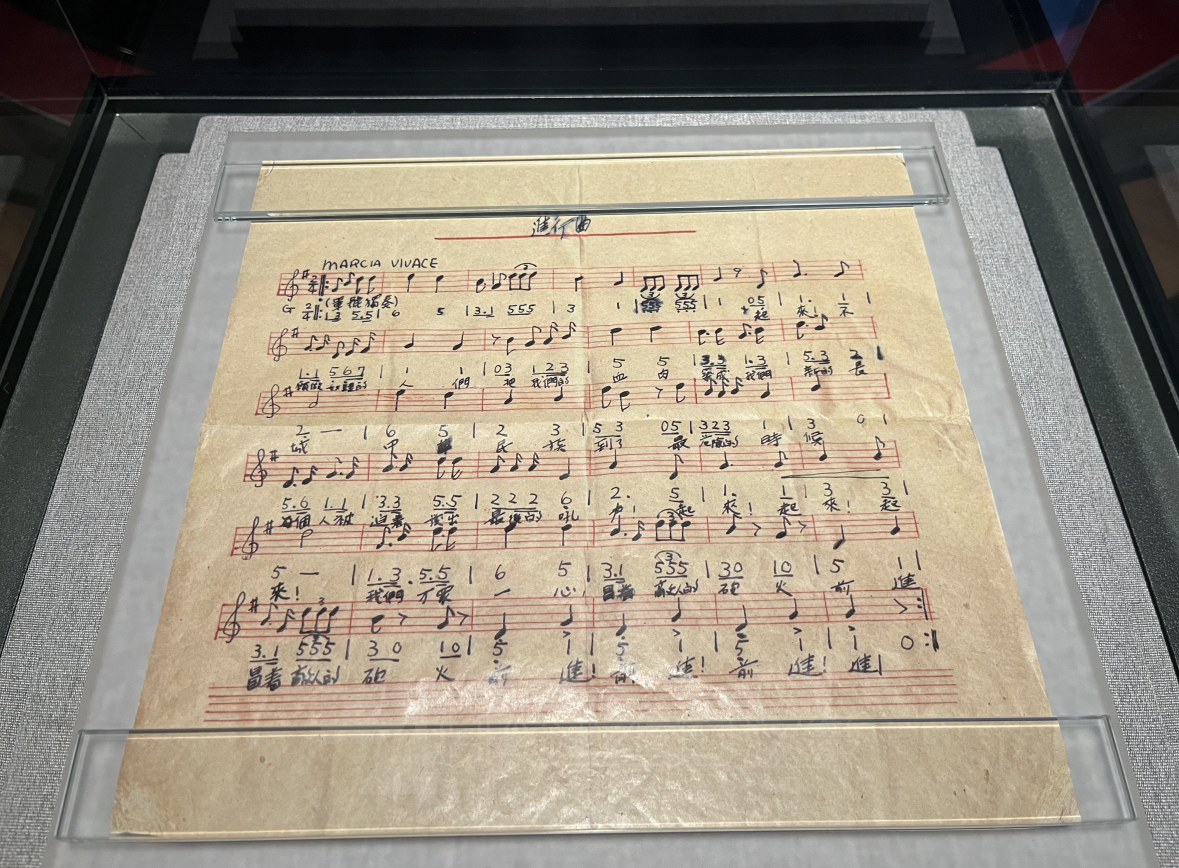 進行曲
MARCIA VIVACE
G 2/4 (軍號獨奏) 1 3 5 5 | 6 5 | 3.1 555 | 3 1 | 555 555 | 1 05 | 1. 1 |
起 來! 不
1.1 567 | 1 1 | 03 123 | 5 5 | 3.3 1.3 | 5.3 2 |
人 們 把 我們的 血 肉 我們 新的 長
2 — | 6 5 | 2 3 | 5 3 05 | 323 1 | 3 0 |
城 中 民 族 到了 最 危險的 時 候
5.6 1.1 | 3.3 5.5 | 2 2 2 6 | 2. 5 | 1. 1 | 3 3 |
每個 人被 迫着 發出 最後的 吼 力! 起 來! 起 來! 起
5 — | 1.3. 5.5 | 6 5 | 3.1 555 | 30 10 | 5 1 |
來! 我們 万眾 一 心 冒着 敵人的 砲 火 前 進
3.1 555 | 3 0 10 | 5 1 | 5 1 | 5 1 | 1 0 :|
冒着 敵人的 砲 火 前 進! 前 進! 前 進! 進!